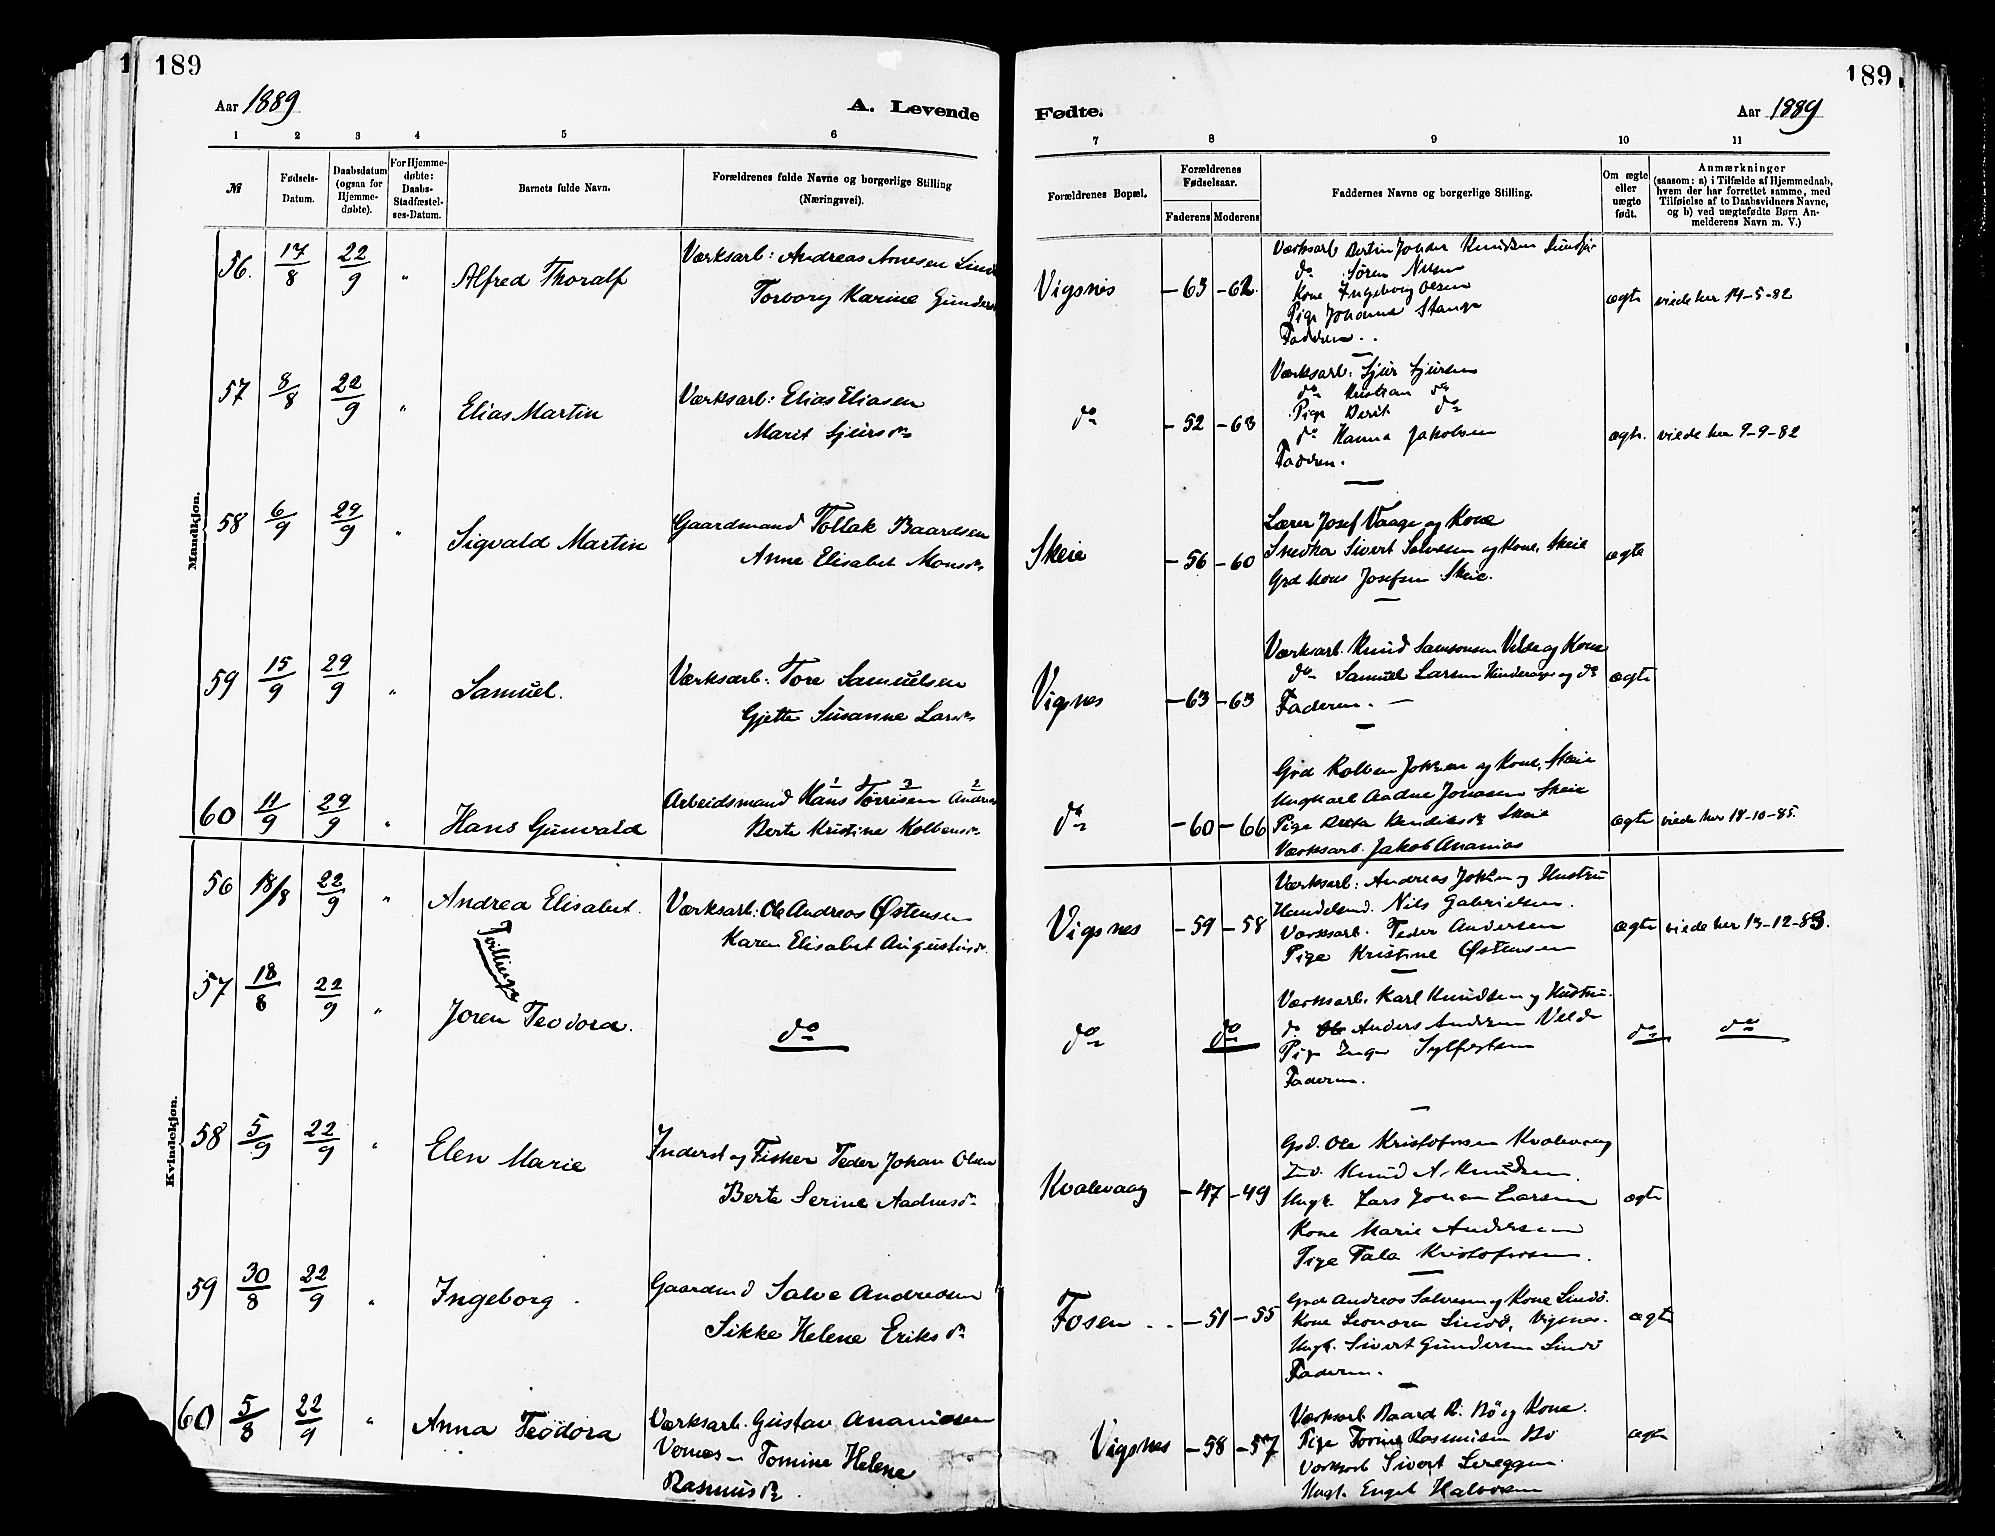 189
Aar 1889
A. Levende
1 2 3 4 5 6
№
Fødsels-Datum.
Daabsdatum (ogsaa for Hjemme-døbte).
For Hjemme-døbte: Daabs-Stadfæstel-ses-Datum.
Barnets fulde Navn.
Forældrenes fulde Navne og borgerlige Stilling
(Næringsvei).
Mandkjøn.
56. 17/8 22/9 " Alfred Thoralf
Værksarb: Andreas Aonesen
Torborg Karine
57 8/8 22/9 " Elias Martin
Værksarb: Elias Eliasen
Marit Sjursdr
58 6/9 29/9 " Sigvald Martin
Gaardmand Tollak Baardsen
Anne Elisabet Monsdr
59 15/9 29/9 " Samuel.
Værksarb. Tore Samuelsen
Gjette Susanne Larsdr
60 11/9 29/9 " Hans Gunvald
Arbeidsmand Hans Tørrisen
Berte Kristine Kolbensdr
Kvindekjøn.
56 18/8 22/9 " Andrea Elisabet.
Værksarb: Ole Andreas Østensen
Karen Elisabet Augustinsdr.
Tvillinge
57 18/8 22/9 " Joren Teodora.
do
58 5/9 22/9 " Elen Marie
Inderst og Fisker Peder Johan Olsen
Berte Serine Aadnesdr
59 30/8 22/9 " Ingeborg.
Gaardmd Salve Andreasen
Sikke Helene Eriksdr
60 5/8 22/9 " Anna Teodora
Værksarb. Gustav Ananiasen
Vornes – Tomine Helene
Rasmusdr.
189
Fødte.
Aar 1889
7 8 9 10 11
Forældrenes Bopæl.
Forældrenes Fødselsaar.
Faderens Moderens
Faddernes Navne og borgerlige Stilling.
Om ægte eller uægte født.
Anmærkninger
(saasom: a) i Tilfælde af Hjemmedaab,
hvem der har forrettet samme, med
Tilføielse af to Daabsvidners Navne,
og b) ved uægtefødte Børn An-
melderens Navn m. V.)
Vigsnes – 63 – 62.
Værksarb Bertin Johder Knudsen
do Søren Nilsen
Kone Ingeborg Olsen
Pige Johanna Stange
Faderen..
ægte viede her 14-5-82
do – 52 – 63
Værksarb. Sjur Sjursen
do Kristian do
Pige Berit do
do Hanna Jakobsen
Faderen.
ægte. viede her 9-9-82
Skeie – 56 – 60
Lærer Josef Vaage og Kone
Snedker Sivert Salvesen og Kone, Skeie
Grd Mons Josefsen Skeie.
ægte
Vigsnes – 63 – 63
Værksarb. Knud Samsonsen Velde og Kone
do Samuel Larsen og do
Faderen. –
ægte
do – 60 – 66
Grd Kolben og Kone, Skeie
Ungkarl Aadne Jonasen Skeie
Pige Skeie
Værksarb. Jakob Ananias
ægte viede her 18-10-85.
Vigsnes – 59 – 58
Værksarb: Andreas og Hustru
Handelsmd. Nils Gabrielsen.
Værksarb. Peder Andersen
Pige Kristine Østensen
ægte viede her 13-12-83.
do do
Værksarb. Karl Knudsen og Hustru.
do Anders Andersen Velde
Pige Inger
Faderen.
do do
Kvalevaag – 47 – 49
Grd. Ole Kristofersen Kvalevaag
Ind. Knud A. Knudsen.
Ungk. Lars Johan Larsen
Kone Marie Andersen
Pige Tala Kristofersen.
ægte
Fosen.. – 51 – 55
Grd Andreas Salvesen og Kone Lindø.
Kone Leonora Lindø, Vigsnes.
Ungk. Sivert Gundersen Lindø
Faderen.
ægte
Vigsnes – 58 – 57
Værksarb Baard R. Bø og Kone.
Pige Rasmusen Bø
Værksarb Sivert
Ungk. Engel Halvorsen
ægte